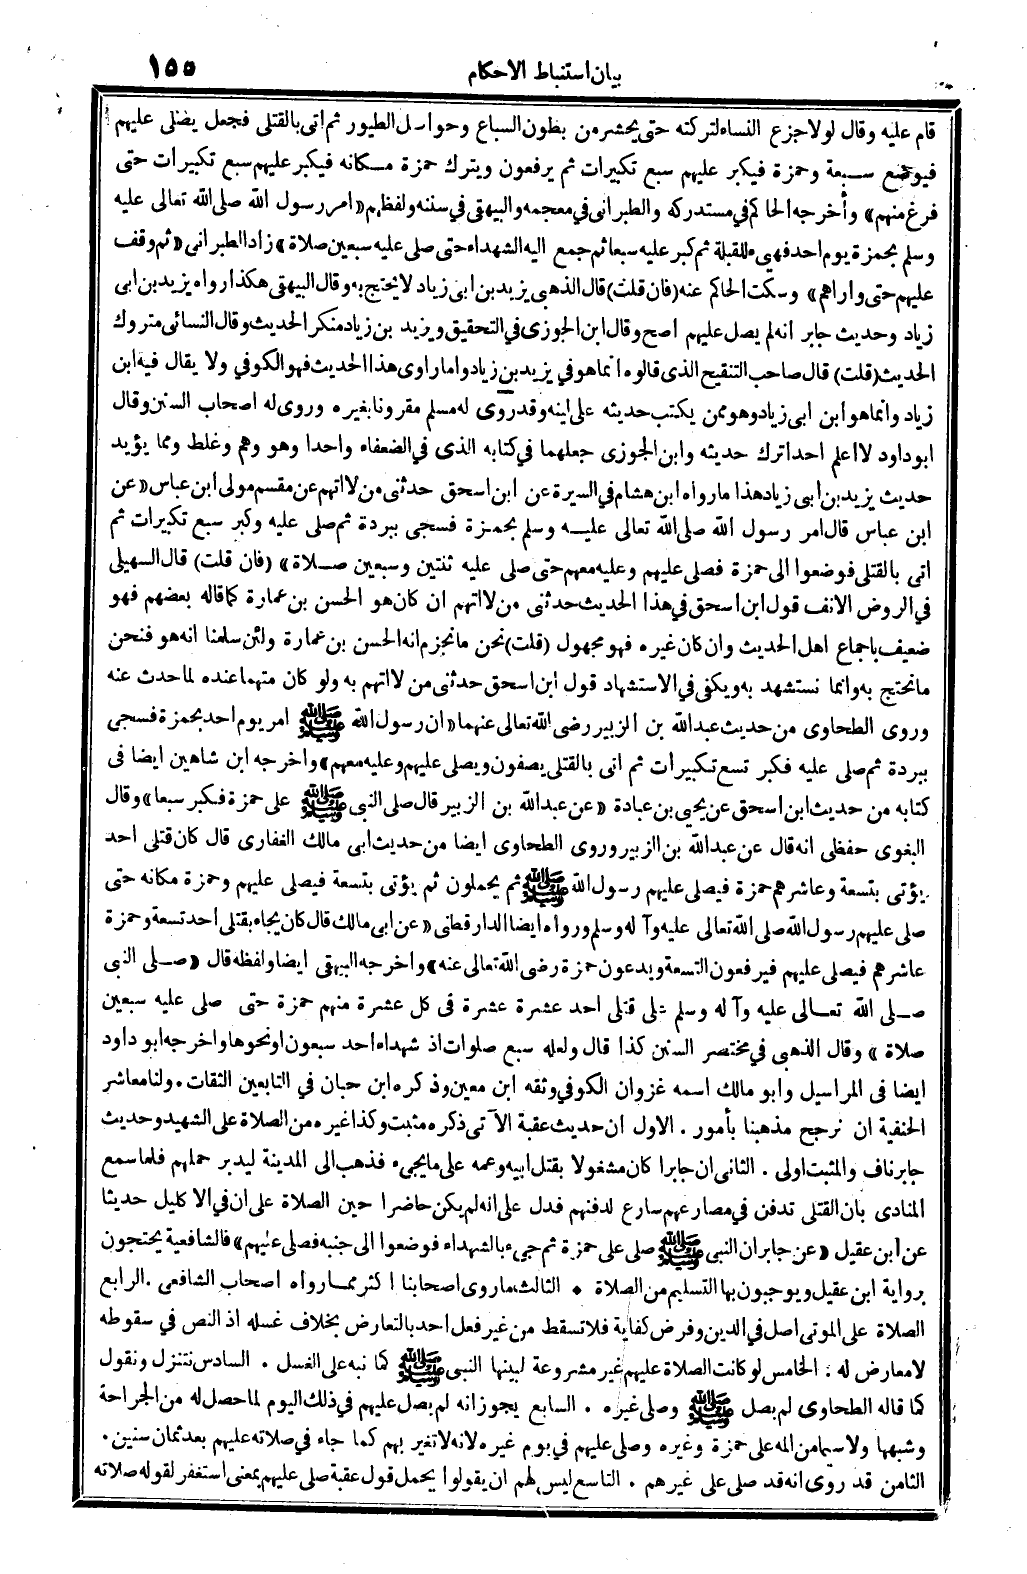 بيان استنباط الاحكام
١٥٥
قام عليه وقال لولا جزع النساء لتركته حتى يحشر من بطون السباع وحواصل الطيور ثم اتى بالقتلى فجعل يصلى عليهم
فيوضع سبعة وحمزة فيكبر عليهم سبع تكبيرات ثم يرفعون ويترك حمزة مكانه فيكبر عليهم سبع تكبيرات حتى
فرغ منهم» وأخرجه الحاكم في مستدركه والطبرانى في معجمه والبيهقى في سننه ولفظهم «امر رسول الله صلى الله تعالى عليه
وسلم بحمزة يوم احد فهيء للقبلة ثم كبر عليه سبعا ثم جمع اليه الشهداء حتى صلى عليه سبعين صلاة» زاد الطبرانى «ثم وقف
عليهم حتى واراهم» وسكت الحاكم عنه (فان قلت) قال الذهبى يزيد بن ابى زياد لا يحتج به وقال البيهقى هكذا رواه يزيد بن ابى
زياد وحديث جابر انه لم يصل عليهم اصح وقال ابن الجوزى في التحقيق ويزيد بن زياد منكر الحديث وقال النسائى متروك
الحديث (قلت) قال صاحب التنقيح الذى قالوه انما هو في يزيد بن زياد واما راوى هذا الحديث فهو الكوفي ولا يقال فيه ابن
زياد وانما هو ابن ابى زياد وهو ممن يكتب حديثه على لينه وقد روى له مسلم مقرونا بغيره وروى له اصحاب السنن وقال
ابو داود لا اعلم احدا ترك حديثه وابن الجوزى جعلهما في كتابه الذى في الضعفاء واحدا وهو وهم وغلط ومما يؤيد
حديث يزيد بن ابى زياد هذا ما رواه ابن هشام في السيرة عن ابن اسحق حدثنى من لا اتهم عن مقسم مولى ابن عباس «عن
ابن عباس قال امر رسول الله صلى الله تعالى عليه وسلم بحمزة فسجى ببردة ثم صلى عليه وكبر سبع تكبيرات ثم
اتى بالقتلى فوضعوا الى حمزة فصلى عليهم وعليه معهم حتى صلى عليه ثنتين وسبعين صلاة» (فان قلت) قال السهيلى
في الروض الانف قول ابن اسحق في هذا الحديث حدثنى من لا اتهم ان كان هو الحسن بن عمارة كما قاله بعضهم فهو
ضعيف باجماع اهل الحديث وان كان غيره فهو مجهول (قلت) نحن ما نجزم انه الحسن بن عمارة ولئن سلمنا انه هو فنحن
ما نحتج به وانما نستشهد به ويكفى في الاستشهاد قول ابن اسحق حدثنى من لا اتهم به ولو كان متهما عنده لما حدث عنه
وروى الطحاوى من حديث عبد الله بن الزبير رضى الله تعالى عنهما «ان رسول الله ﷺ امر يوم احد بحمزة فسجى
ببردة ثم صلى عليه فكبر تسع تكبيرات ثم اتى بالقتلى يصفون ويصلى عليهم وعليه معهم» واخرجه ابن شاهين ايضا فى
كتابه من حديث ابن اسحق عن يحيى بن عبادة «عن عبد الله بن الزبير قال صلى النبى ﷺ على حمزة فكبر سبعا» وقال
البغوى حفظى انه قال عن عبد الله بن الزبير وروى الطحاوى ايضا من حديث ابى مالك الغفارى قال كان قتلى احد
يؤتى بتسعة وعاشرهم حمزة فيصلى عليهم رسول الله ﷺ ثم يحملون ثم يؤتى بتسعة فيصلى عليهم وحمزة مكانه حتى
صلى عليهم رسول الله صلى الله تعالى عليه وآله وسلم ورواه ايضا الدارقطنى «عن ابى مالك قال كان يجاء بقتلى احد تسعة وحمزة
عاشرهم فيصلى عليهم فيرفعون التسعة ويدعون حمزة رضى الله تعالى عنه» واخرجه البيهقى ايضا ولفظه قال «صلى النبى
صلى الله تعالى عليه وآله وسلم على قتلى احد عشرة عشرة فى كل عشرة منهم حمزة حتى صلى عليه سبعين
صلاة» وقال الذهبى في مختصر السنن كذا قال ولعله سبع صلوات اذ شهداء احد سبعون او نحوها واخرجه ابو داود
ايضا فى المراسيل وابو مالك اسمه غزوان الكوفي وثقه ابن معين وذكره ابن حبان في التابعين الثقات. ولنا معاشر
الحنفية ان نرجح مذهبنا بأمور. الاول ان حديث عقبة الآتى ذكره مثبت وكذا غيره من الصلاة على الشهيد وحديث
جابر ناف والمثبت اولى. الثانى ان جابرا كان مشغولا بقتل ابيه وعمه على ما يجىء فذهب الى المدينة ليدبر حملهم فلما سمع
المنادى بان القتلى تدفن في مصارعهم سارع لدفنهم فدل على انه لم يكن حاضرا حين الصلاة على ان في الاكليل حديثا
عن ابن عقيل «عن جابر ان النبى ﷺ صلى على حمزة ثم جىء بالشهداء فوضعوا الى جنبه فصلى عليهم» فالشافعية يحتجون
برواية ابن عقيل ويوجبون بها التسليم من الصلاة * الثالث ما روى اصحابنا اكثر مما رواه اصحاب الشافعى. الرابع
الصلاة على الموتى اصل في الدين وفرض كفاية فلا تسقط من غير فعل احد بالتعارض بخلاف غسله اذ النص في سقوطه
لا معارض له: الخامس لو كانت الصلاة عليهم غير مشروعة لبينها النبى ﷺ كما نبه على الغسل. السادس نتنزل ونقول
كما قاله الطحاوى لم يصل ﷺ وصلى غيره. السابع يجوز انه لم يصل عليهم في ذلك اليوم لما حصل له من الجراحة
وشبهها ولا سيما من المه على حمزة وغيره وصلى عليهم في يوم غيره لانه لا تغير بهم كما جاء في صلاته عليهم بعد ثمان سنين.
الثامن قد روى انه قد صلى على غيرهم. التاسع ليس لهم ان يقولوا يحمل قول عقبة صلى عليهم بمعنى استغفر لقوله صلاته